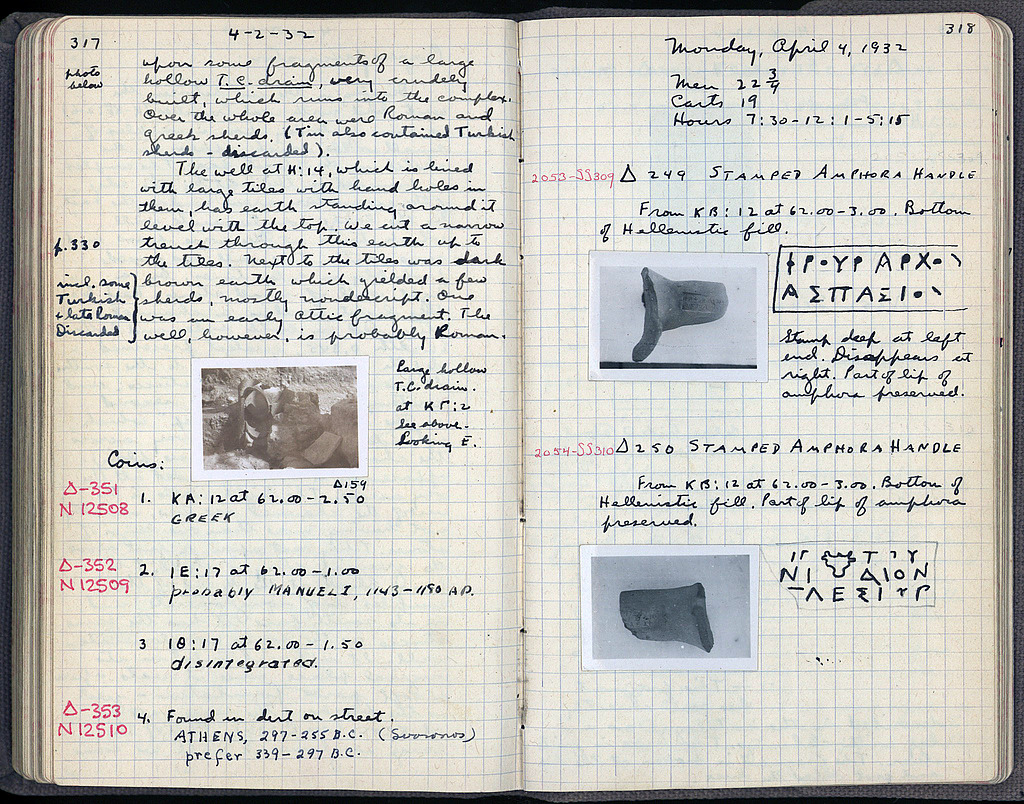 317
4-2-32
photo
below
upon some fragments of a large
hollow T.C. drain, very crudely
built, which runs into the complex.
Over the whole area were Roman and
Greek sherds. (Tin also contained Turkish
sherds - discarded).
The well at H:14, which is lined
with large tiles with hand holes in
them, has earth standing around it
level with the top. We cut a narrow
p.330
trench through this earth up to
the tiles. Next to the tiles was dark
brown earth which yielded a few
sherds, mostly nondescript. One
was an early Attic fragment. The
well, however, is probably Roman.
incl. some
Turkish
+ late Roman
Discarded
Large hollow
T.C. drain.
at KΓ:2
See above.
Looking E.
Coins:
Δ-351
N 12508
Δ159
1. KA:12 at 62.00-2.50
GREEK
Δ-352
N 12509
2. IE:17 at 62.00-1.00
probably MANUEL I, 1143-1180 A.D.
3 IΘ:17 at 62.00-1.50
disintegrated.
Δ-353
N 12510
4. Found in dirt on street.
ATHENS, 297-255 B.C. (Svoronos)
prefer 339-297 B.C.
318
Monday, April 4, 1932
Men 22 3/4
Carts 19
Hours 7:30-12:1-5:15
2053-SS309 Δ 249 STAMPED AMPHORA HANDLE
From KB:12 at 62.00-3.00. Bottom
of Hellenistic fill.
ΦΡ•ΥΡ ΑΡΧ•
ΑΣΠΑΣΙ•
Stamp deep at left
end. Disappears at
right. Part of lip of
amphora preserved.
2054-SS310 Δ 250 STAMPED AMPHORA HANDLE
From KB:12 at 62.00-3.00. Bottom of
Hellenistic fill. Part of lip of amphora
preserved.
ΝΙ ΔΙΟΝ